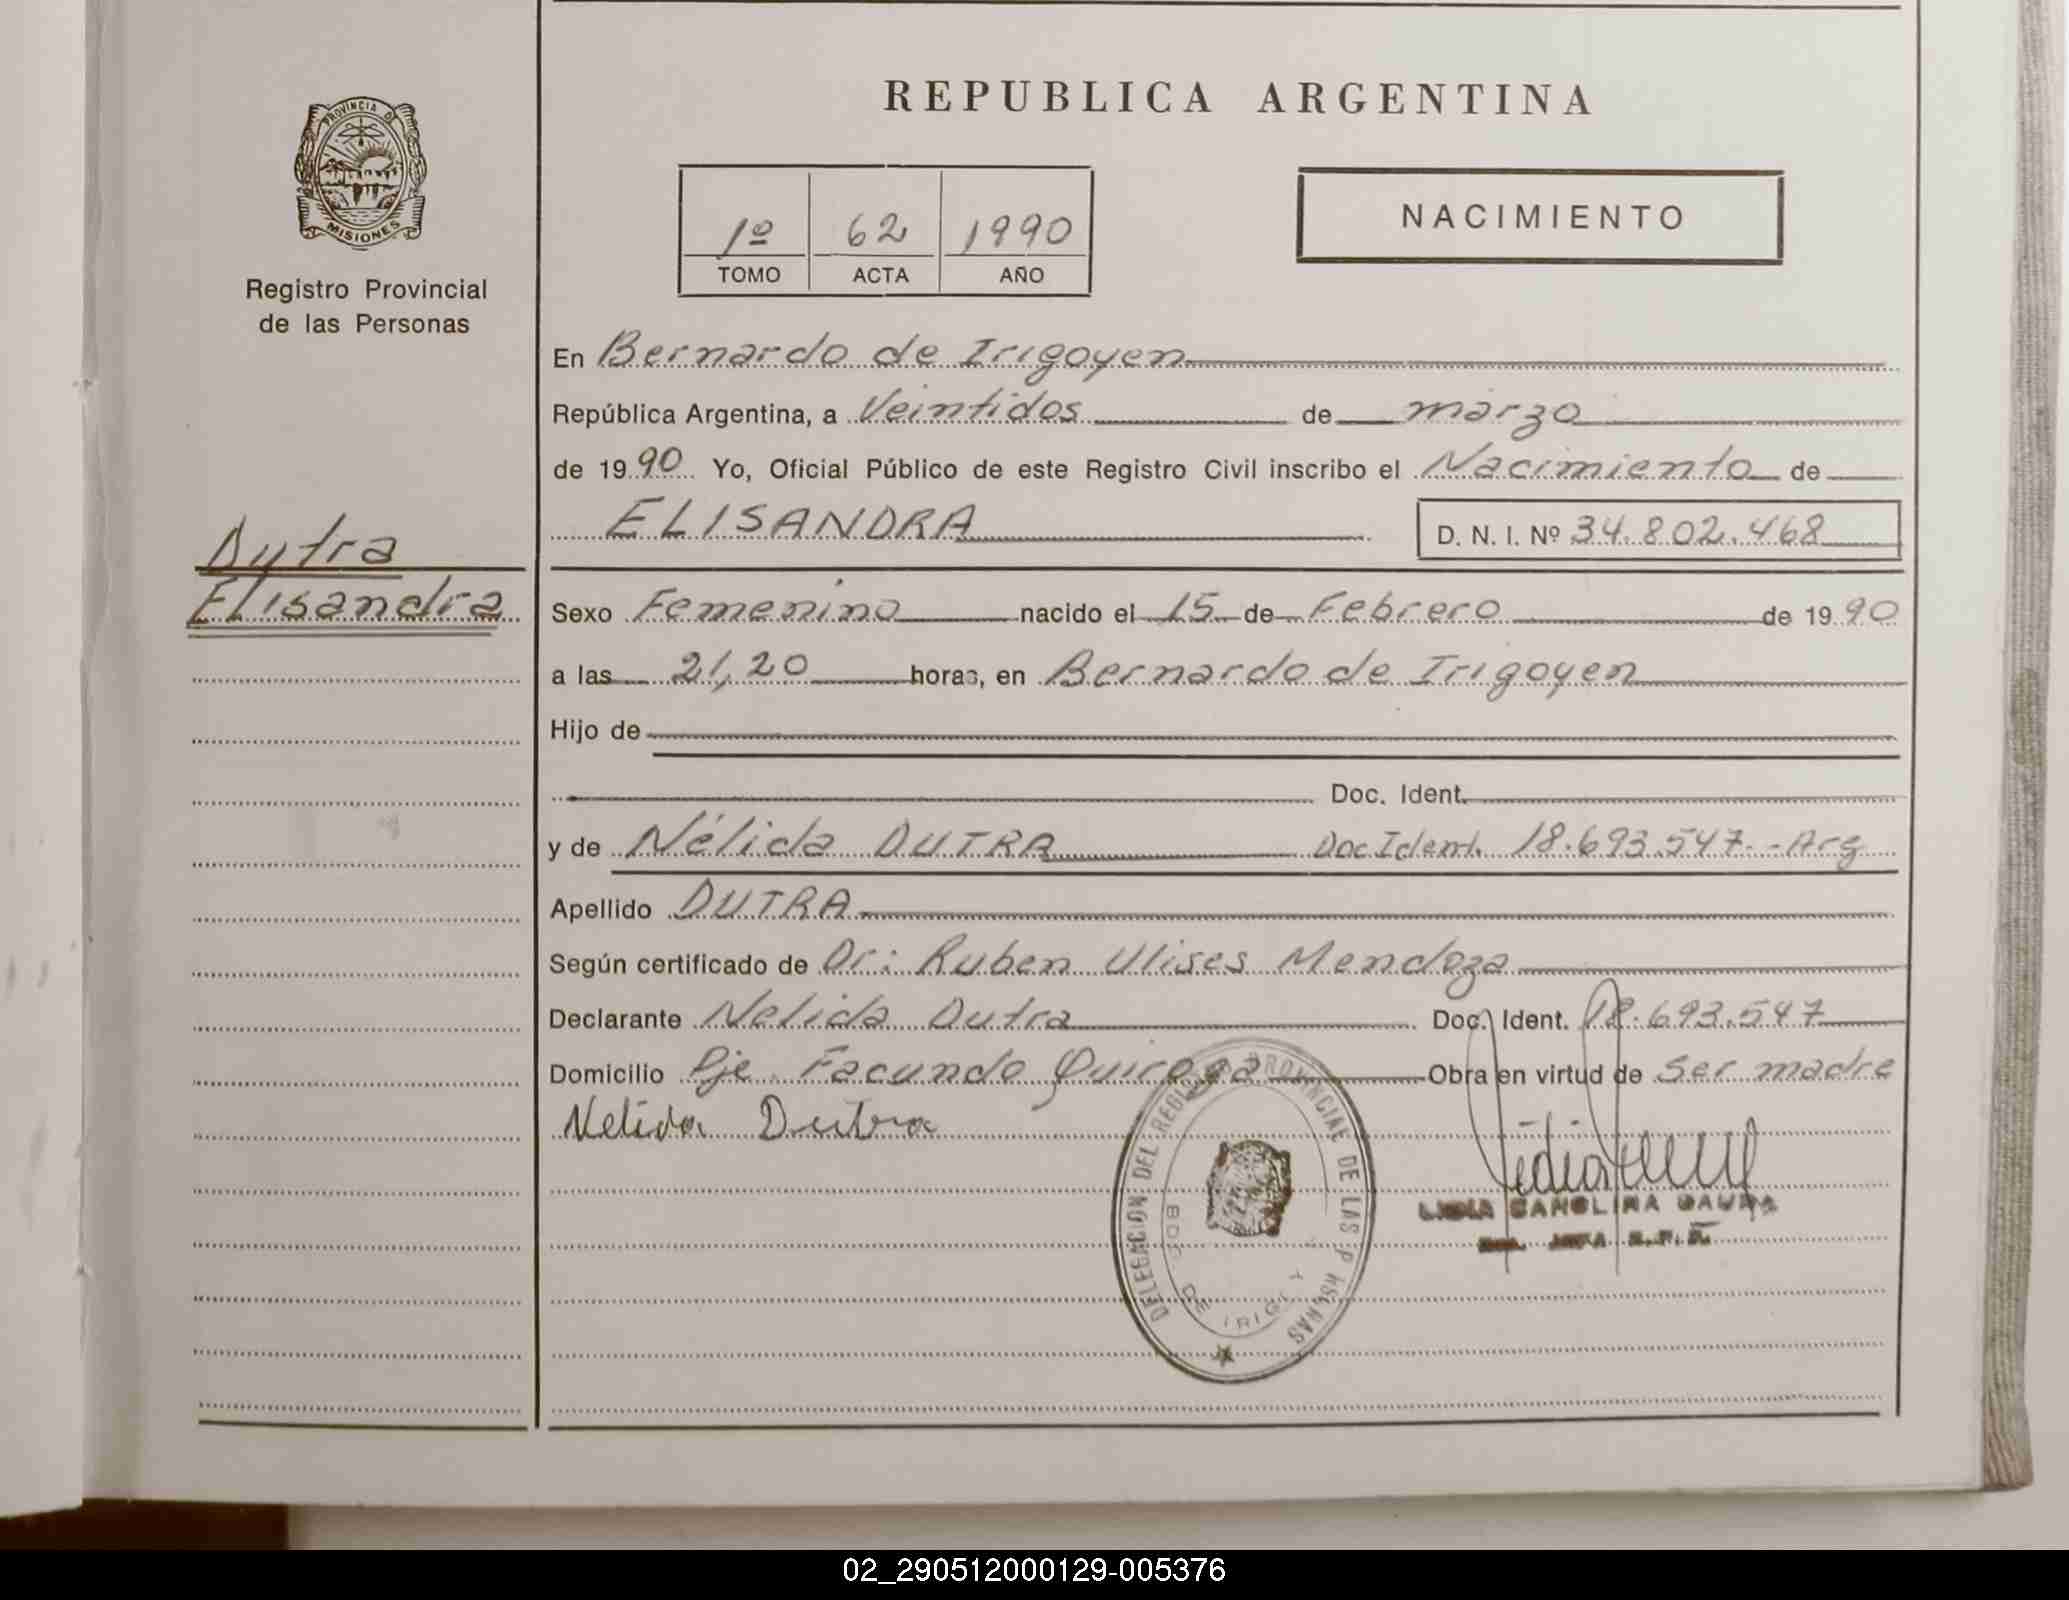 REPUBLICA ARGENTINA
PROVINCIA DE
MISIONES
Registro Provincial
de las Personas
1º 62 1990
TOMO ACTA AÑO
NACIMIENTO
En Bernardo de Irigoyen
República Argentina, a Veintidos de marzo
de 1990 Yo, Oficial Público de este Registro Civil inscribo el Nacimiento de
ELISANDRA D. N. I. Nº 34.802.468
Dutra
Elisandra
Sexo Femenino nacido el 15 de Febrero de 1990
a las 21,20 horas, en Bernardo de Irigoyen
Hijo de
Doc. Ident.
y de Nélida DUTRA Doc Ident. 18.693.547.-Arg
Apellido DUTRA
Según certificado de Dr: Ruben Ulises Mendoza
Declarante Nelida Dutra Doc. Ident. 18.693.547
Domicilio Pje Facundo Quiroga Obra en virtud de ser madre
Nelida Dutra
DELEGACION DEL REGISTRO PROVINCIAL DE LAS PERSONAS
BDO. DE IRIGOY
LIDIA CAROLINA
02_290512000129-005376